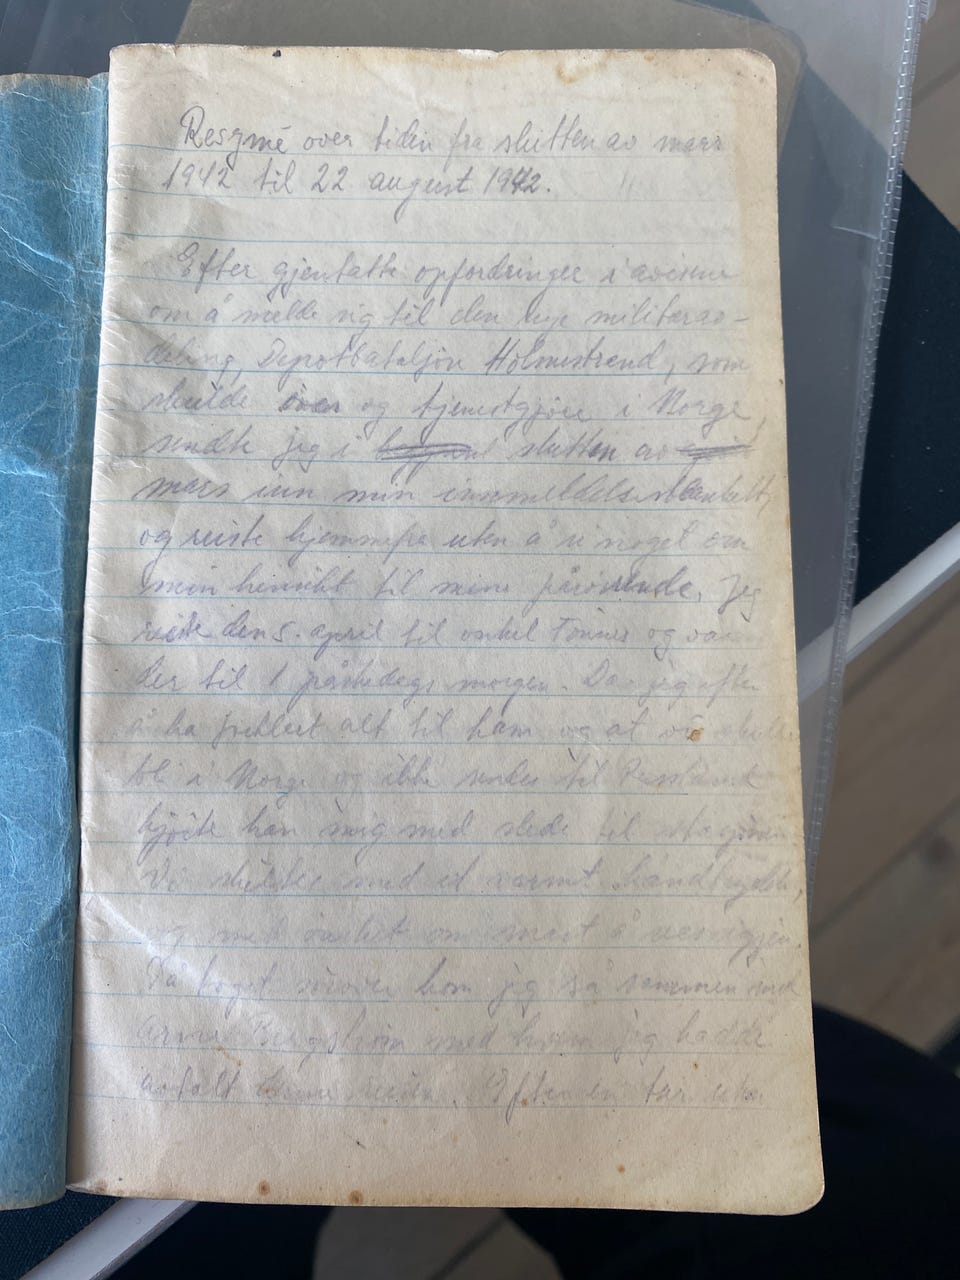 Resymé over tiden fra slutten av mars
1942 til 22 august 1942.
Efter gjentatte opfordringer i avisene
om å melde sig til den nye militærav-
deling, Depotbataljon Holmestrand, som
skulde og tjenestgjøre i Norge
sendte jeg i slutten av
mars inn min innmeldelsesblankett,
og reiste hjemmefra uten å si noget om
min hensikt til mine pårørende. Jeg
reiste den 5. april til onkel Tønnes og var
der til 1 påskedags morgen. Da jeg efter
å ha forklart alt til ham og at vi skulde
bli i Norge og ikke sendes til Russland
kjørte han mig med slede til stasjonen
Vi skiltes med et varmt håndtrykk,
og med ønsket om snart å sees igjen.
På toget sørover kom jeg så sammen med
Arne Bergstrøm med hvem jeg hadde
avtalt denne reisen. Efter en tur uten